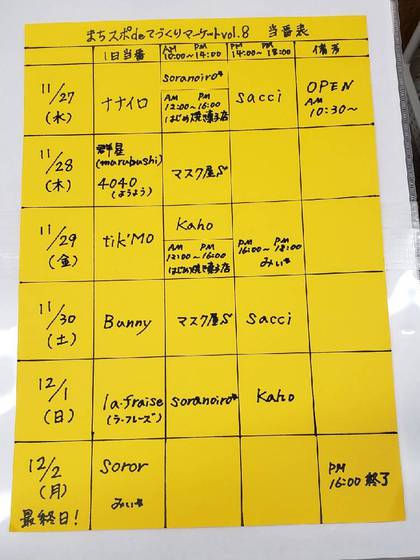 まちスポdeてづくりマーケットvol.8 当番表
1日当番
AM PM
10:00〜14:00
PM PM
14:00〜18:00
備考
11/27
(水)
ナナイロ
soranoiro*
AM PM
12:00〜16:00
はじめ焼菓子店
sacci
OPEN
AM
10:30〜
11/28
(木)
群星
(murubushi)
4040
(ようよう)
マスク屋S
11/29
(金)
tik'MO
Kaho
AM PM
12:00〜16:00
はじめ焼菓子店
PM PM
16:00〜18:00
みぃき
11/30
(土)
Bunny
マスク屋S
sacci
12/1
(日)
la.fraise
(ラ・フレーズ)
soranoiro*
Kaho
12/2
(月)
最終日!
soror
みぃき
PM
16:00 終了